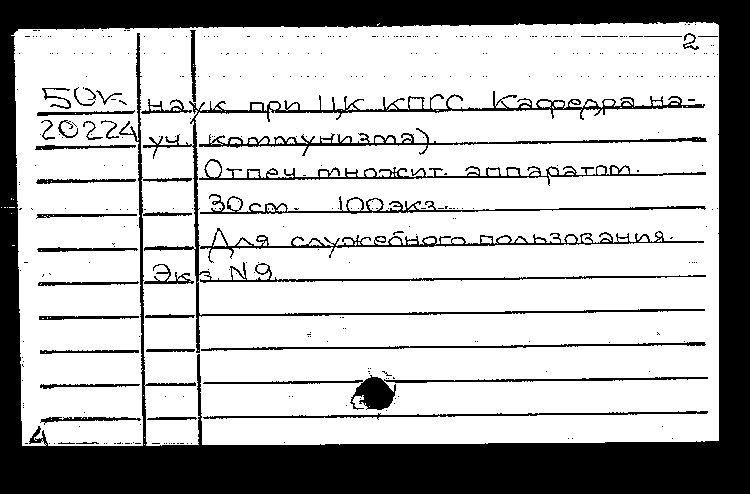 2
50к наук при ЦК КПСС. Кафедра на-
20224 уч. коммунизма).
Отпеч. множит. аппаратом.
30см. 100экз.
Для служебного пользования.
Экз. N9
4